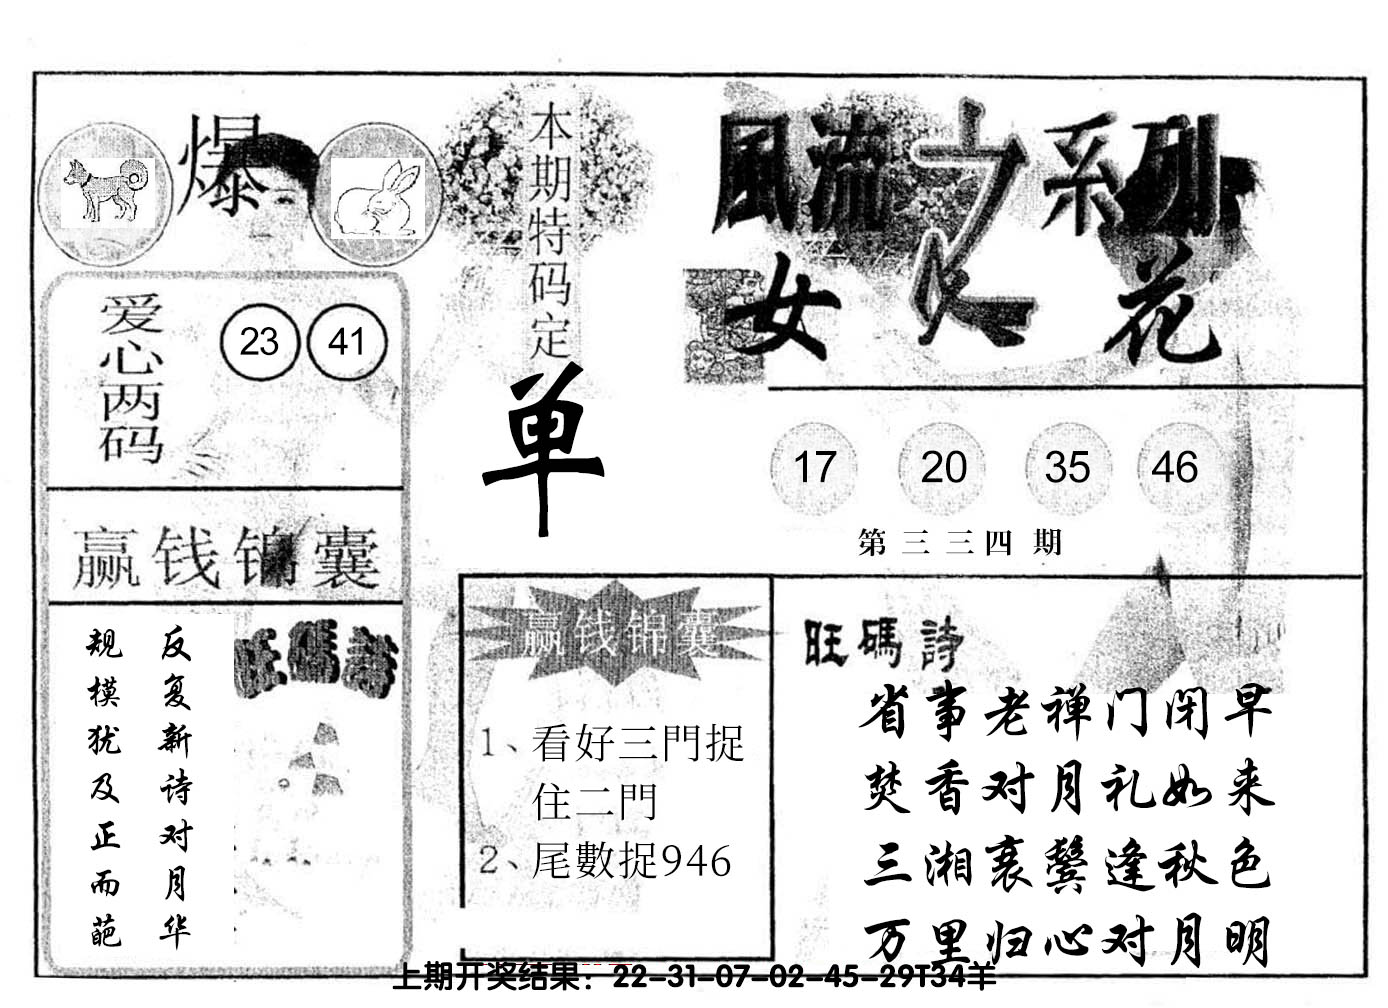 爆
爱心两码
23 41
赢钱锦囊
反复新诗对月华
规模犹及正而葩
旺碼詩
本期特码定
单
風流之系列
女人花
17 20 35 46
第三三四 期
赢钱锦囊
1、看好三門捉
住二門
2、尾數捉946
旺碼詩
省事老禅门闭早
焚香对月礼如来
三湘衰鬓逢秋色
万里归心对月明
上期开奖结果：22-31-07-02-45-29T34羊